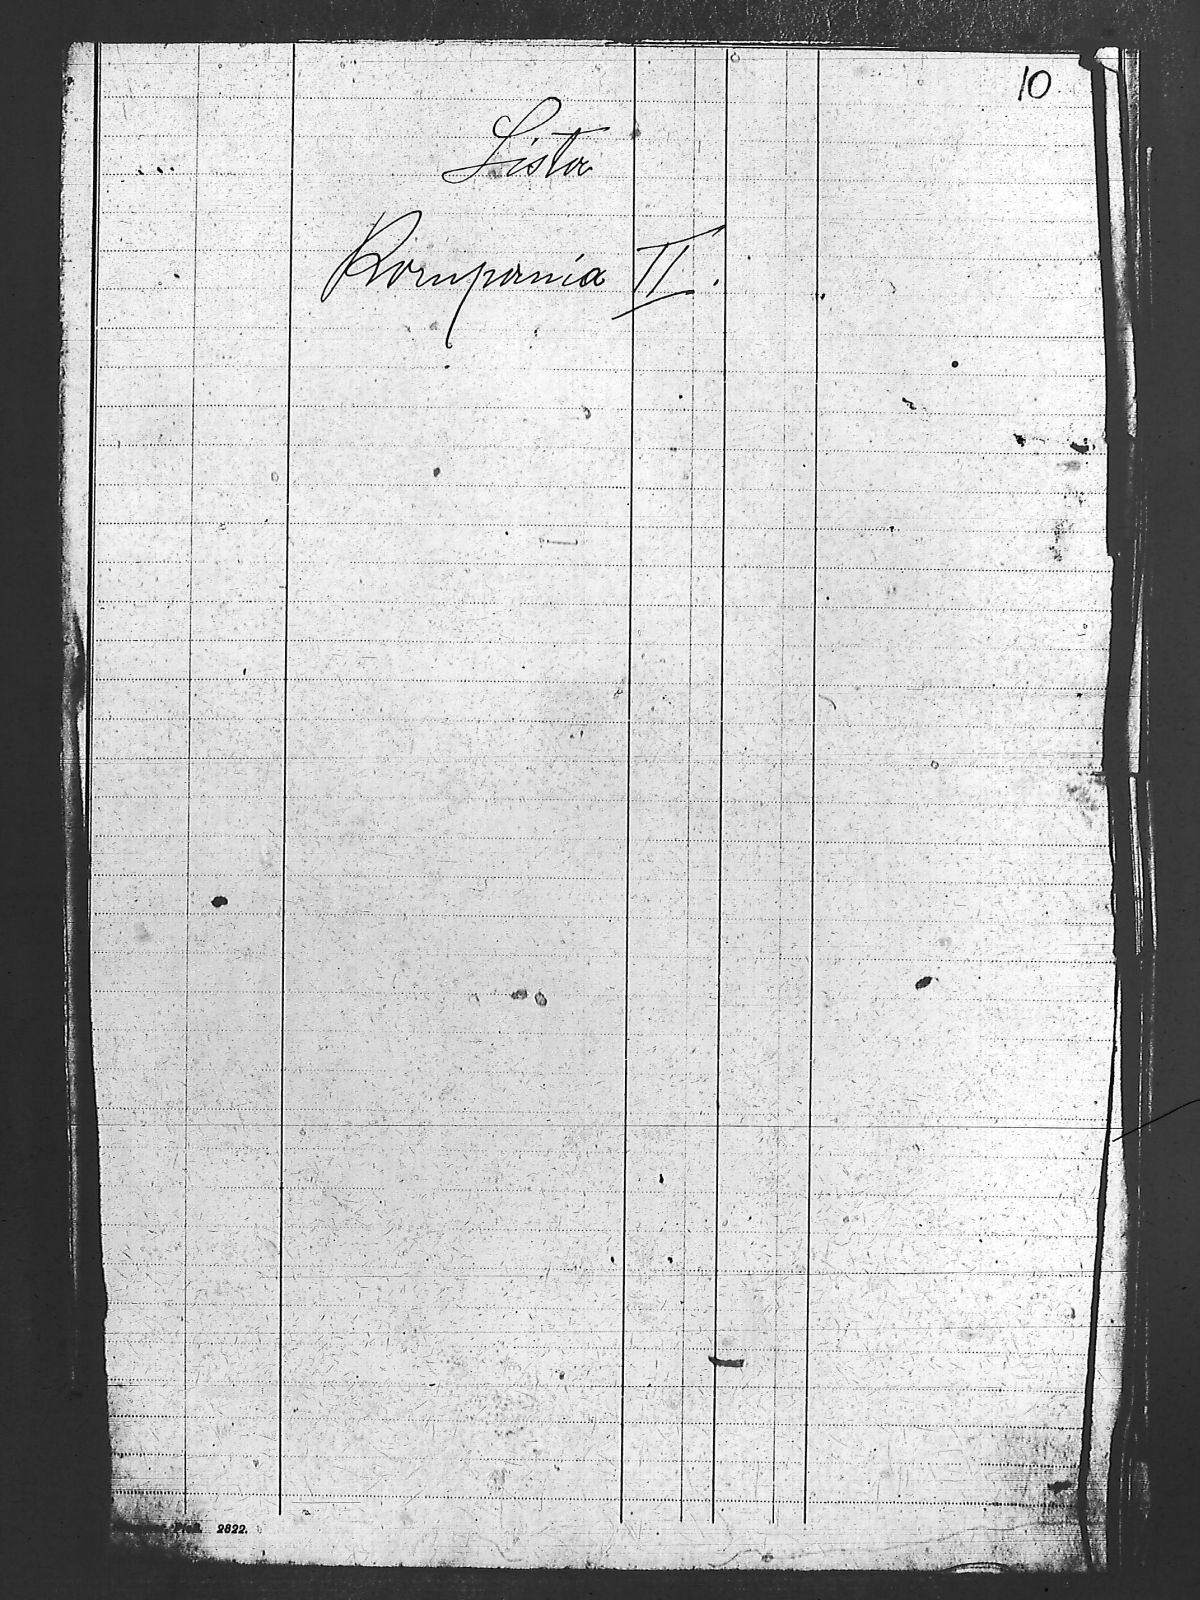 10
Lista
Kompania II.
2822.